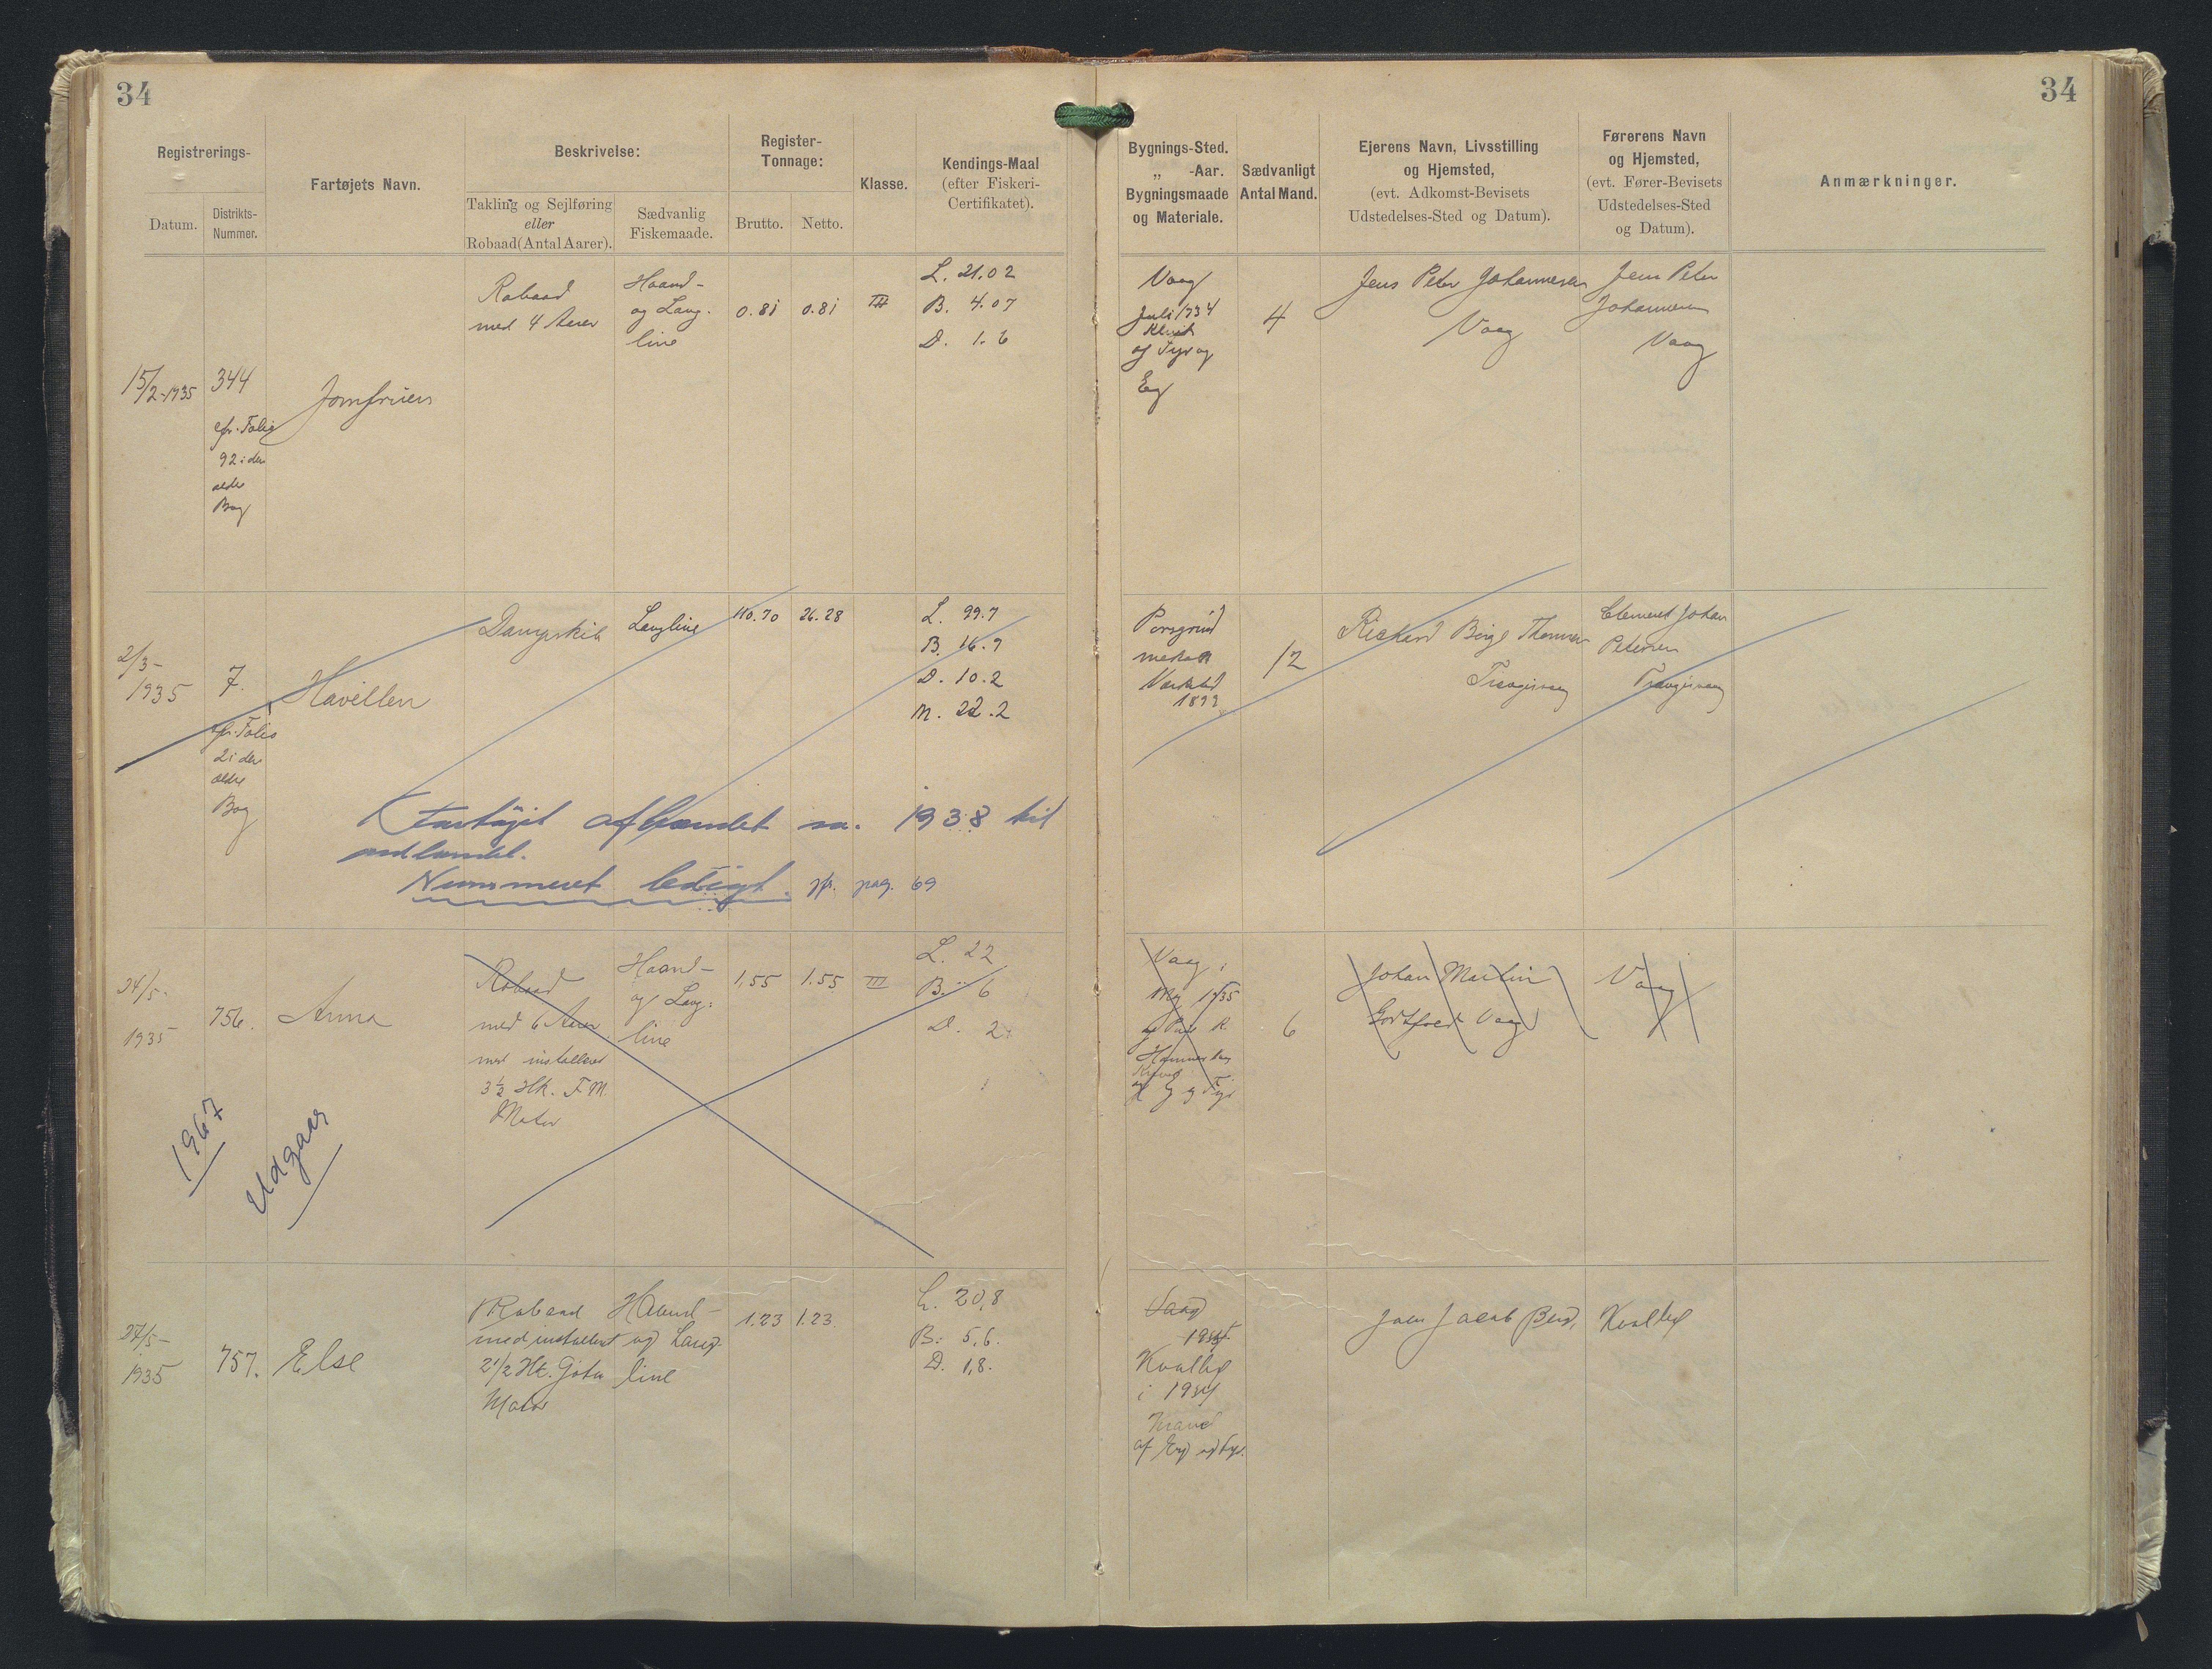 34
34
Registrerings-
Datum.
Distrikts-
Nummer.
Fartøjets Navn.
Beskrivelse:
Takling og Sejlføring
eller
Robaad (Antal Aarer).
Sædvanlig
Fiskemaade.
Register-
Tonnage:
Brutto.
Netto.
Klasse.
Kendings-Maal
(efter Fiskeri-
Certifikatet).
Bygnings-Sted.
„ -Aar.
Bygningsmaade
og Materiale.
Sædvanligt
Antal Mand.
Ejerens Navn, Livsstilling
og Hjemsted,
(evt. Adkomst-Bevisets
Udstedelses-Sted og Datum).
Førerens Navn
og Hjemsted,
(evt. Fører-Bevisets
Udstedelses-Sted
og Datum).
Anmærkninger.
15/2-1935
344
cfr. Folio
92 i den
ældre
Bog
Jomfruen
Robaad
med 4 Aarer
Haand-
og Lang-
line
0.81
0.81
III
L. 21.02
B. 4.07
D. 1.6
Vaag
Juli 1934
af Fyr og
Eg
4
Jens Peter Johannesen
Vaag
Jens Peter
Johannesen
Vaag
2/3-
1935
7.
cfr. Folio
2 i den
ældre
Bog
Havillen
Dampskib
Langline
110.70
26.28
L. 99.7
B. 16.9
D. 10.2
M. 22.2
Porsgrund
mek.
Værksted
1899
12
Rickard Birge Thomsen
Trangisvaag
Clement Johan
Petersen
Trangisvaag
Fartøjet afhændet 1938 til
udlandet.
Nummeret ledigt. jfr. pag. 69
24/5-
1935
756.
Anna
Robaad
med 6 Aarer
med installeret
3½ Hk. F.M.
Motor
Haand-
og Lang-
line
1,55
1.55
III
L. 22
B. 6
D. 2
Vaag i
Maj 1935
af Poul R.
af Eg og Fyr
6
Johan Martin
Godtfred Vaag
Vaag
1967
Udgaar
27/5-
1935
757.
Else
Robaad
med installeret
2 1/2 Hk. Gøta
Motor
Haand-
og Lang-
line
1.23
1.23
L. 20,8
B. 5,6.
D. 1,8.
Vaag
1934
Kvalbø
i 1934
Kravel
af Eg og Fyr.
Joen Jacob
Kvalbø